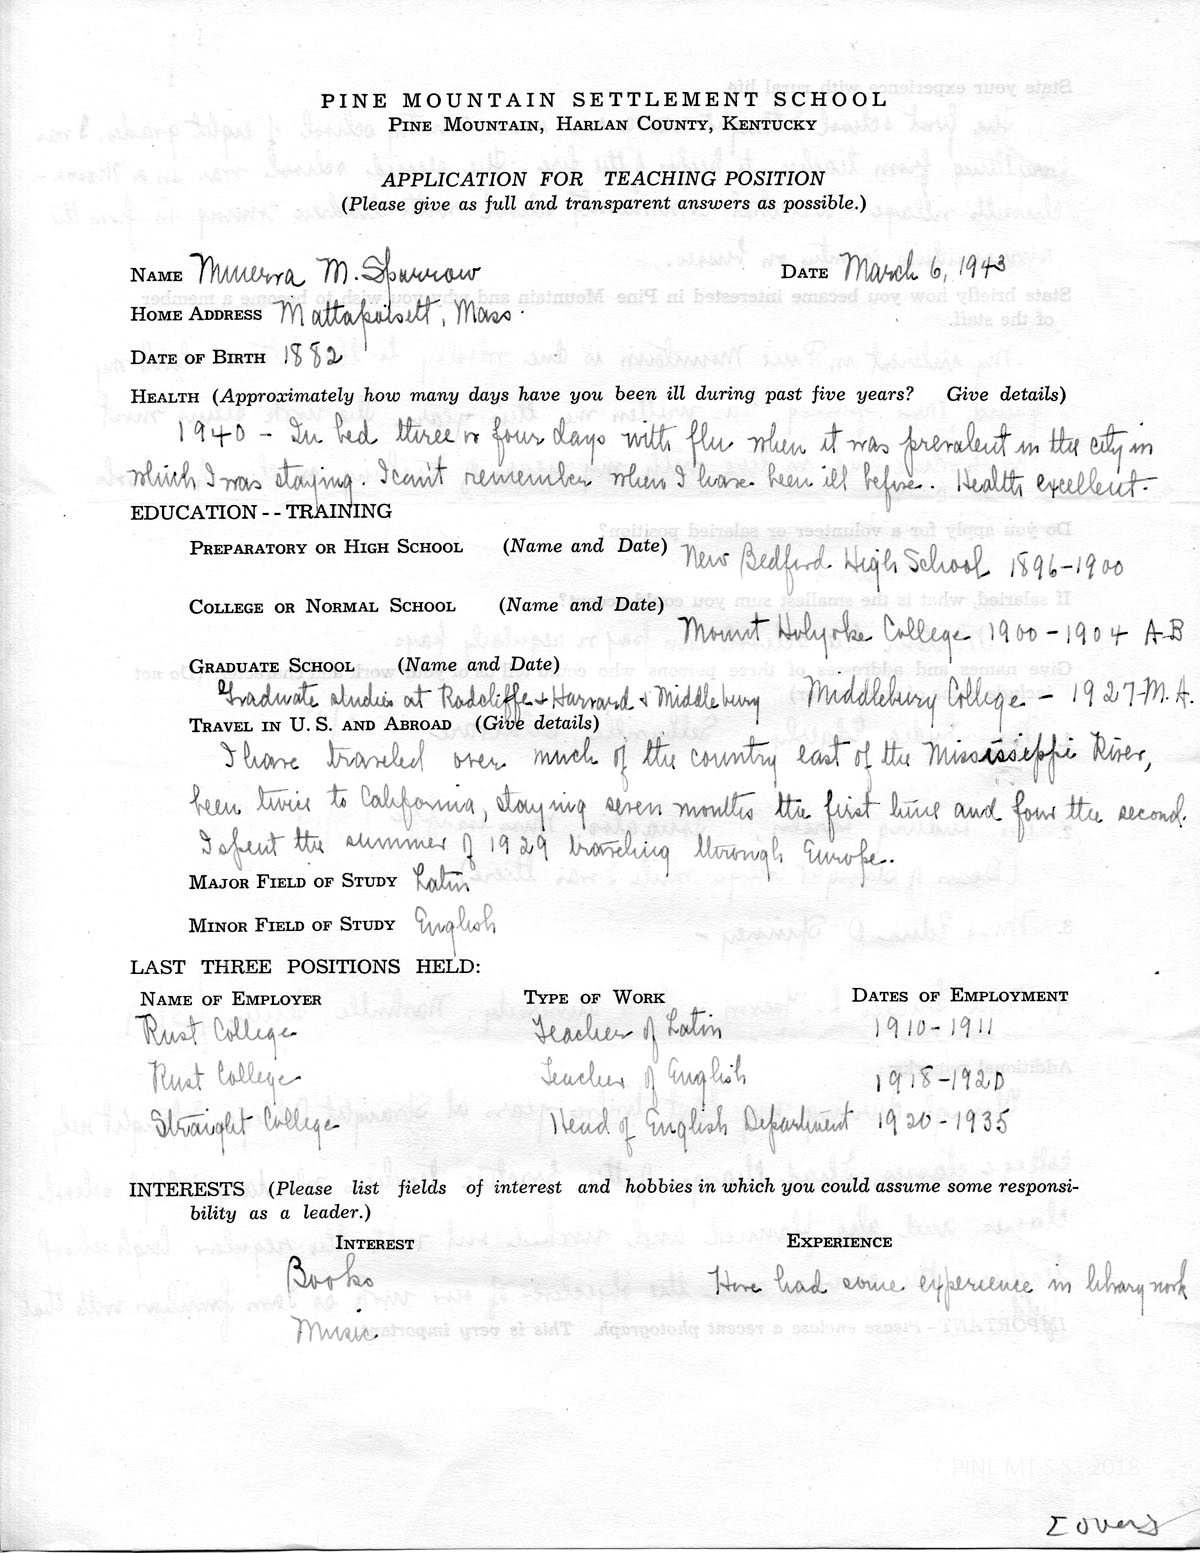 PINE MOUNTAIN SETTLEMENT SCHOOL
PINE MOUNTAIN, HARLAN COUNTY, KENTUCKY
APPLICATION FOR TEACHING POSITION
(Please give as full and transparent answers as possible.)
NAME Minerva M. Sparrow DATE March 6, 1943
HOME ADDRESS Mattapoisett, Mass.
DATE OF BIRTH 1882
HEALTH (Approximately how many days have you been ill during past five years? Give details)
1940 - In bed three or four days with flu when it was prevalent in the city in
which I was staying. I can't remember when I have been ill before. Health excellent.
EDUCATION -- TRAINING
PREPARATORY OR HIGH SCHOOL (Name and Date) New Bedford High School 1896-1900
COLLEGE OR NORMAL SCHOOL (Name and Date) Mount Holyoke College 1900-1904 A-B
GRADUATE SCHOOL (Name and Date)
Graduate studies at Radcliffe + Harvard + Middlebury Middlebury College - 1927-M.A.
TRAVEL IN U. S. AND ABROAD (Give details)
I have traveled over much of the country east of the Mississippi River,
been twice to California, staying seven months the first time and four the second.
I spent the summer of 1929 traveling through Europe.
MAJOR FIELD OF STUDY Latin
MINOR FIELD OF STUDY English
LAST THREE POSITIONS HELD:
NAME OF EMPLOYER TYPE OF WORK DATES OF EMPLOYMENT
Rust College Teacher of Latin 1910-1911
Rust College Teacher of English 1918-1920
Straight College Head of English Department 1920-1935
INTERESTS (Please list fields of interest and hobbies in which you could assume some responsi-
bility as a leader.)
INTEREST EXPERIENCE
Books Have had some experience in library work
Music
PINE MT S.S. 2018
[over]